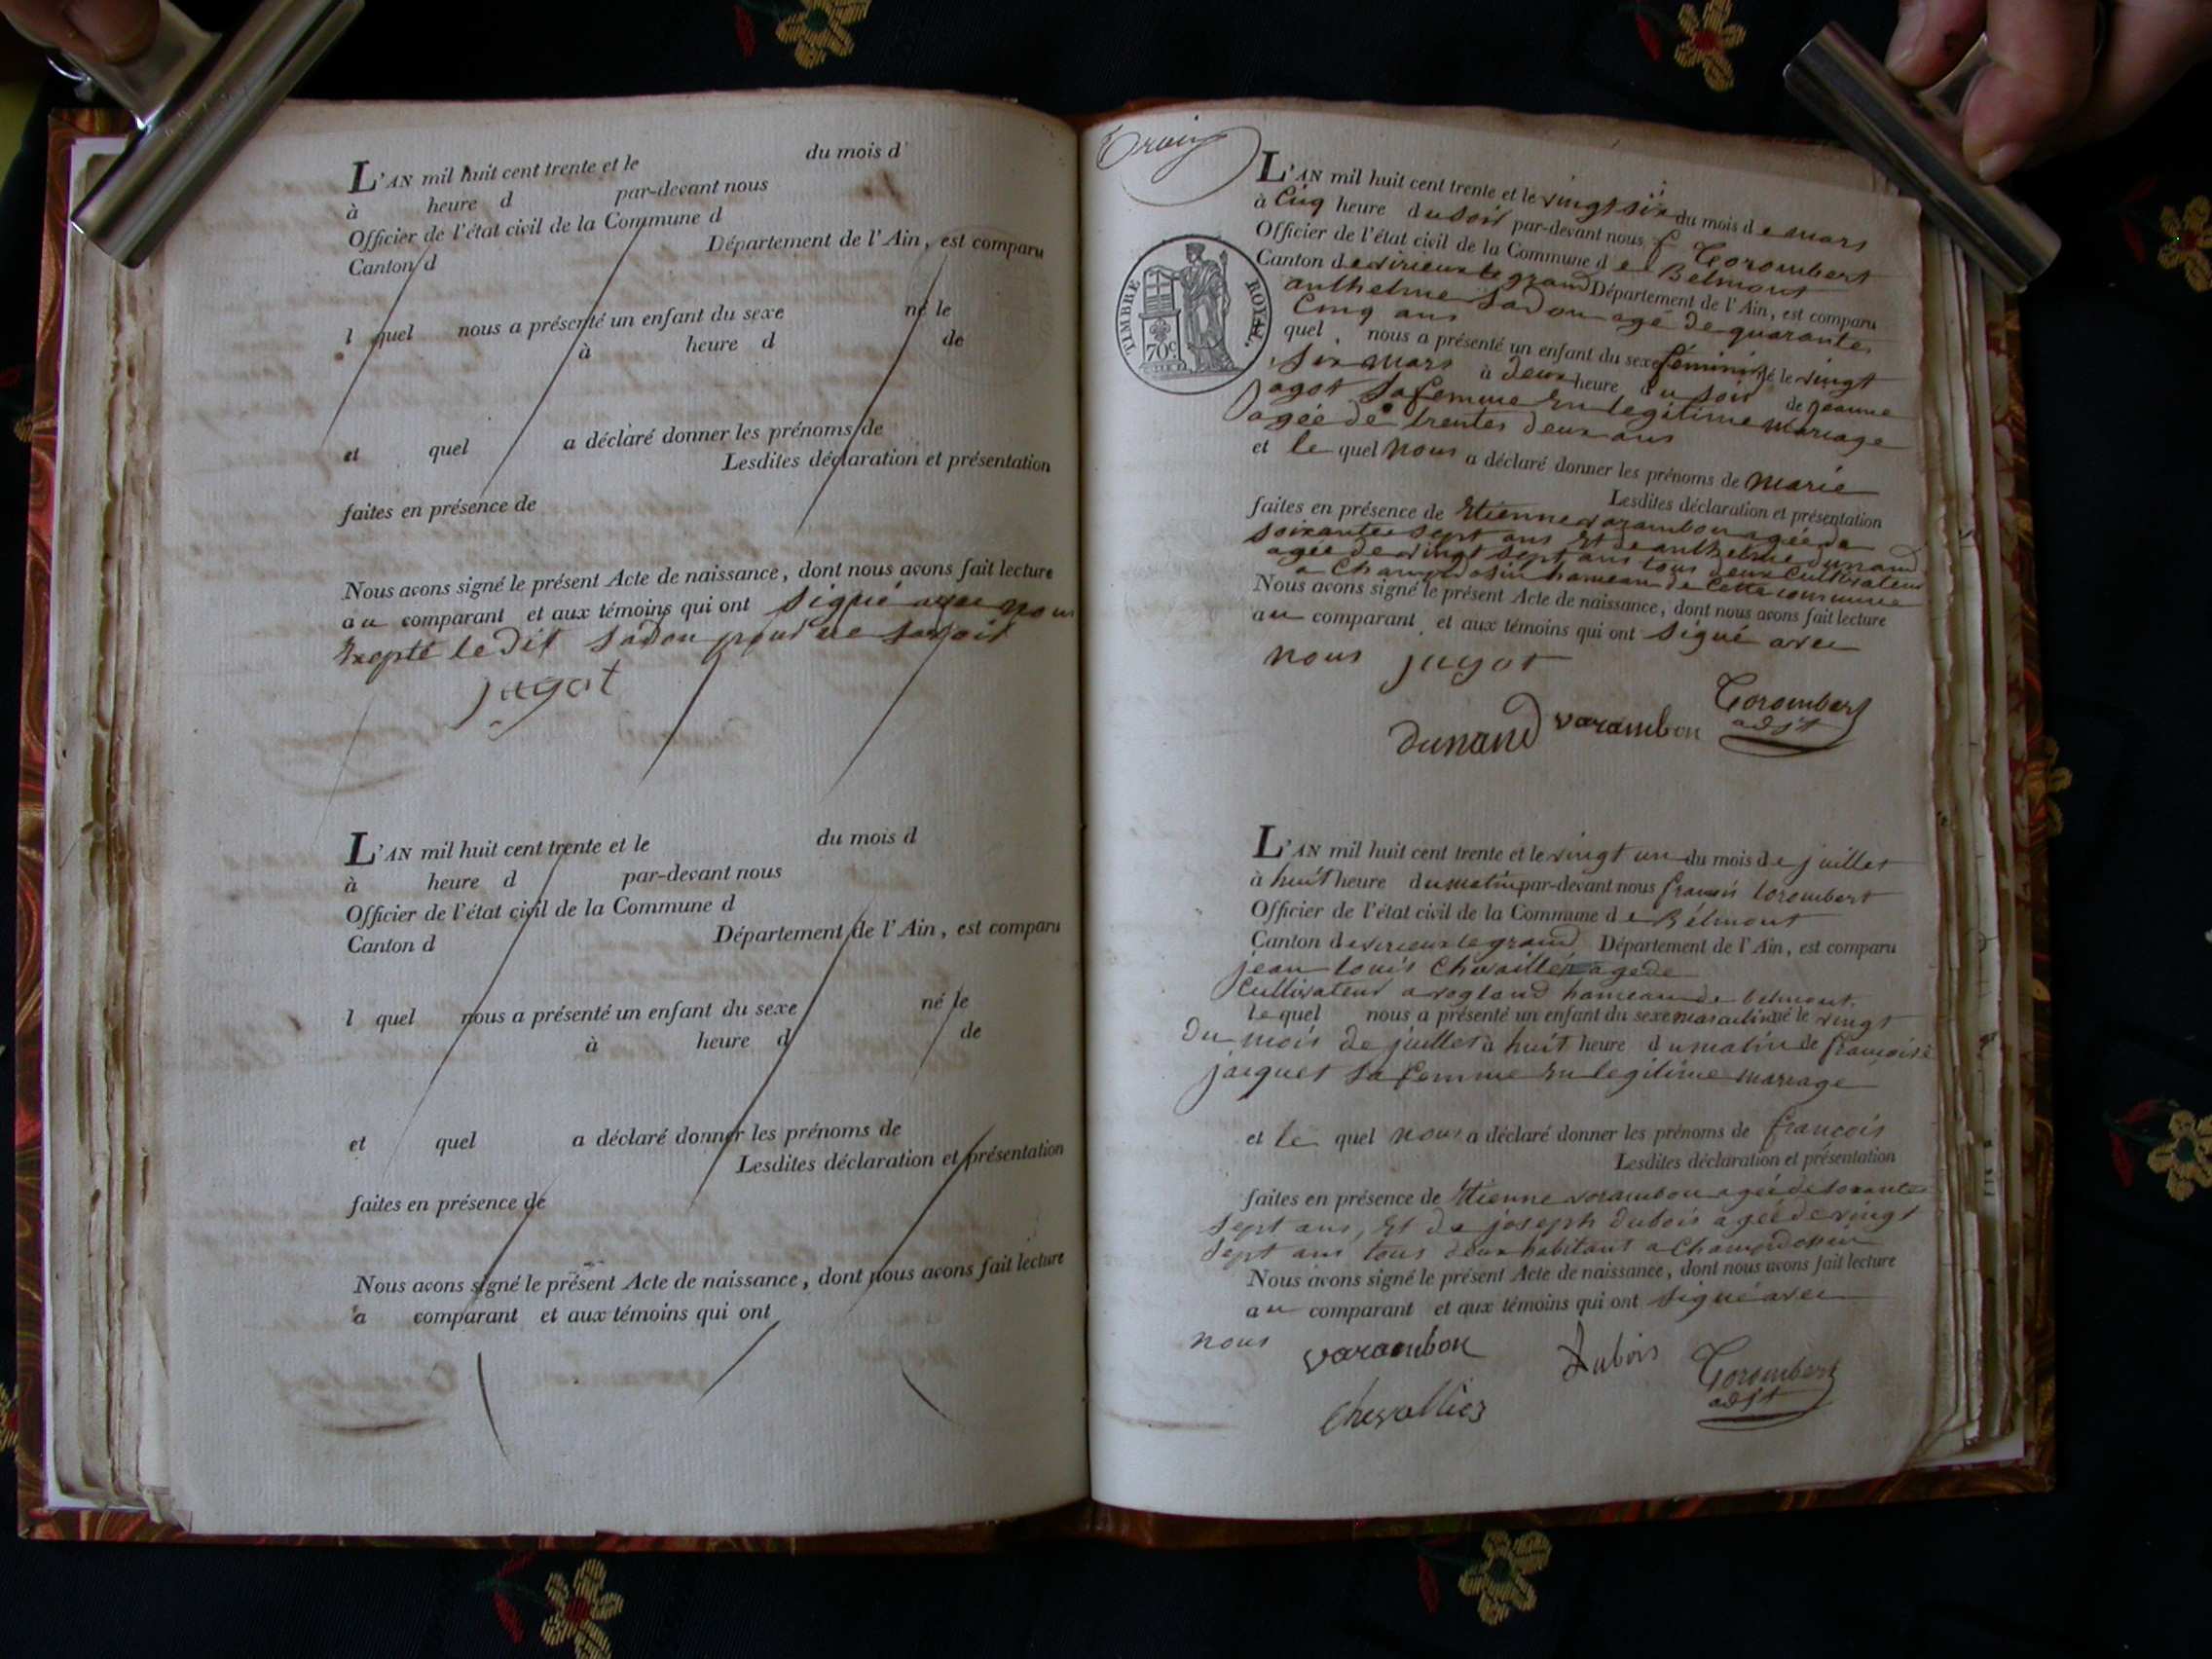 L'AN mil huit cent trente et le du mois d
à heure d par-devant nous
Officier de l'état civil de la Commune d
Canton d Département de l'Ain, est comparu
l quel nous a présenté un enfant du sexe né le
à heure d de
et quel a déclaré donner les prénoms de
Lesdites déclaration et présentation
faites en présence de
Nous avons signé le présent Acte de naissance, dont nous avons fait lecture
au comparant et aux témoins qui ont signé avec nous
Exepté le dit Sadou pour ne savoir
jugot
L'AN mil huit cent trente et le du mois d
à heure d par-devant nous
Officier de l'état civil de la Commune d
Canton d Département de l'Ain, est comparu
l quel nous a présenté un enfant du sexe né le
à heure d de
et quel a déclaré donner les prénoms de
Lesdites déclaration et présentation
faites en présence de
Nous avons signé le présent Acte de naissance, dont nous avons fait lecture
a comparant et aux témoins qui ont
TIMBRE ROYAL.
70c
L'AN mil huit cent trente et le vingt six du mois de mars
à Cinq heure du soir par-devant nous f Torombert
Officier de l'état civil de la Commune de Belmont
Canton de virieux le grand Département de l'Ain, est comparu
anthelme Sadou agé de quarante
Cinq ans
quel nous a présenté un enfant du sexe féminin né le vingt
Six mars à deux heure du soir de jeanne
jagot Sa femme En legitime mariage
agée de trentes deux ans
et le quel nous a déclaré donner les prénoms de marie
Lesdites déclaration et présentation
faites en présence de Etienne varambon agée de
Soixantes Sept ans Et de anthelme dunand
agée de vingt sept ans tous deux Cultivateur
a Champdosin hameau de Cette commune
Nous avons signé le présent Acte de naissance, dont nous avons fait lecture
au comparant et aux témoins qui ont Signé avec
nous jugot
Torombert
adjt
dunand varambon
L'AN mil huit cent trente et le vingt un du mois de juillet
à huit heure du matin par-devant nous françois torombert
Officier de l'état civil de la Commune de Bélmont
Canton de virieux le grand Département de l'Ain, est comparu
jean louis Chevaillier agé de
Cultivateur a vogland hameau de belmont.
le quel nous a présenté un enfant du sexe masculin né le vingt
Du mois de juillet à huit heure du matin de françoise
jacquet Sa femme En legitime mariage
et le quel nous a déclaré donner les prénoms de françois
Lesdites déclaration et présentation
faites en présence de Etienne varambon agée de Soxante
Sept ans, Et de joseph dubois agée de vingt
Sept ans tous deux habitant a Champdosin
Nous avons signé le présent Acte de naissance, dont nous avons fait lecture
au comparant et aux témoins qui ont Signé avec
nous varambon Dubois Torombert
adjt
chevallier